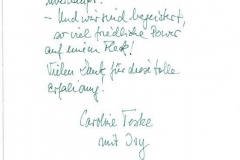 überhaupt!
- Und wir sind begeistert,
so viel friedliche Power
auf einem Fleck!
Vielen Dank für diese tolle
Erfahrung!
Caroline Teske
mit Ivy